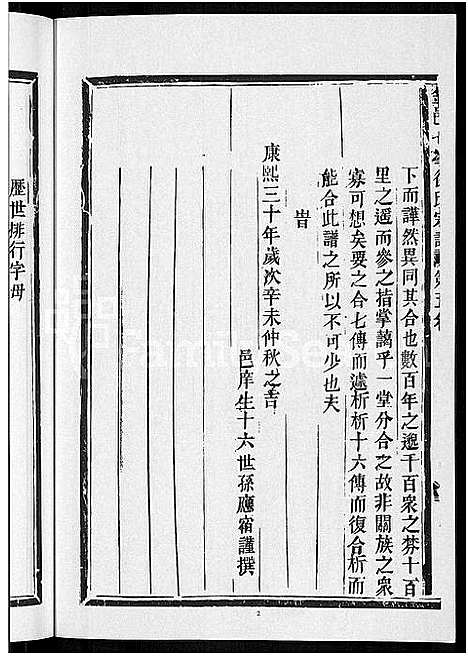 下而譁然異同其合也數百年之邈千百衆之棼十百
里之遥而參之指掌藹乎一堂分合之故非關族之衆
寡可想矣要之合七傳而遽析析十六傳而復合析而
能合此譜之所以不可少也夫
旹
康熙三十年歲次辛未仲秋之吉
邑庠生十六世孫應宿謹撰
歷世排行字母
2